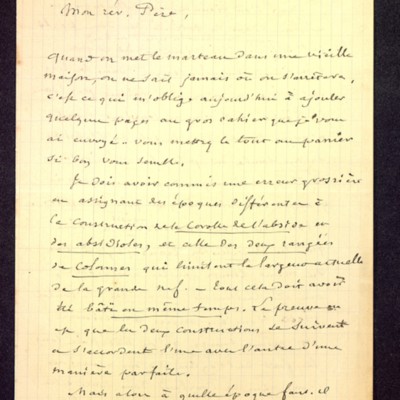 Mon rév. Père,
Quand on met le marteau dans une vieille
maison, on ne sait jamais où on s'arrêtera,
c'est ce qui m'oblige aujourd'hui à ajouter
quelques pages au gros cahier que je vous
ai envoyé - vous mettrez le tout au panier
si bon vous semble.
Je dois avoir commis une erreur grossière
en assignant des époques différentes à
la construction de la Corolle de l'abside en
des absidioles, et celle des deux rangées
de colonnes qui limitent la largeur actuelle
de la grande nef. - Tout cela doit avoir
été bâti en même temps. La preuve en
est que les deux constructions se suivent
et s'accordent l'une avec l'autre d'une
manière parfaite.
Mais alors à quelle époque faut-il